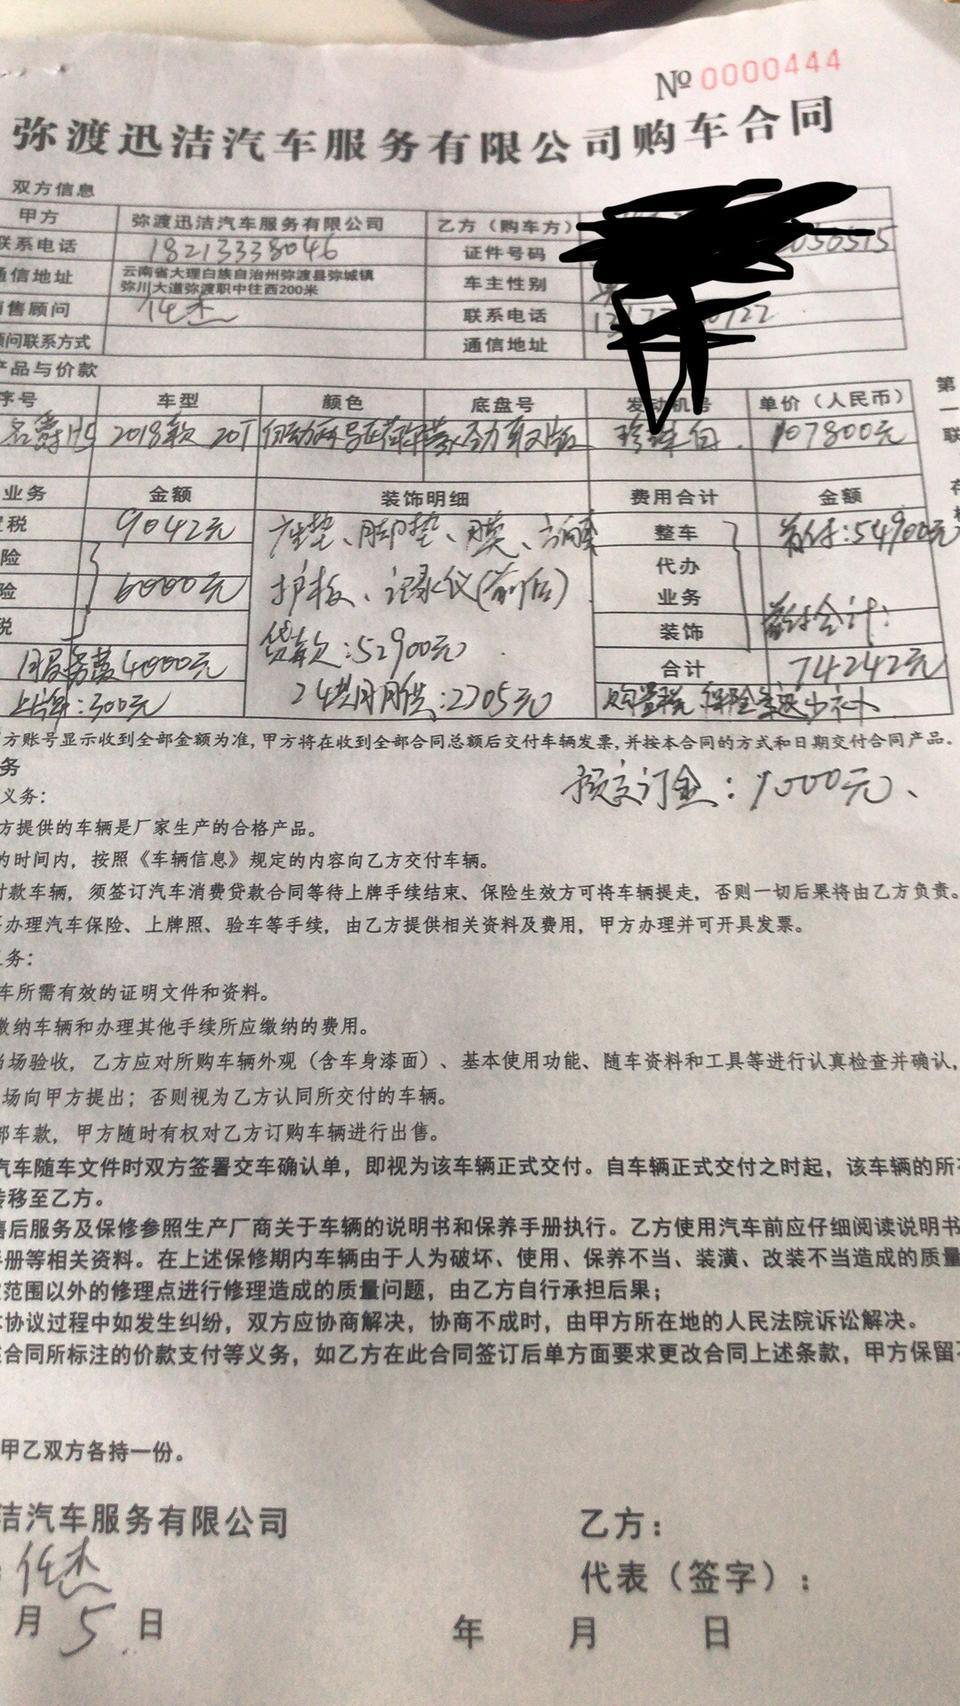 № 0000444
弥渡迅洁汽车服务有限公司购车合同
双方信息
甲方 弥渡迅洁汽车服务有限公司 乙方（购车方）
联系电话 18213338046 证件号码
通信地址 云南省大理白族自治州弥渡县弥城镇
弥川大道弥渡职中往西200米 车主性别
售顾问 任杰 联系电话
问联系方式 通信地址
产品与价款
序号 车型 颜色 底盘号 发动机号 单价（人民币）
名爵HS 2018款 20T 珍珠白 107800元
业务 金额 装饰明细 费用合计 金额
税 9042元 座垫、脚垫、膜、方向盘 整车 首付：54900元
险 代办
险 6000元 护板、记录仪（前后） 业务
税 贷款：52900元 装饰 首付合计：
服务费4000元 合计 74242元
上牌：300元 24期月供：2205元 购置税 保险多退少补
方账号显示收到全部金额为准，甲方将在收到全部合同总额后交付车辆发票，并按本合同的方式和日期交付合同产品。
务
预交订金：1000元、
义务：
方提供的车辆是厂家生产的合格产品。
的时间内，按照《车辆信息》规定的内容向乙方交付车辆。
付款车辆，须签订汽车消费贷款合同等待上牌手续结束、保险生效方可将车辆提走，否则一切后果将由乙方负责。
办理汽车保险、上牌照、验车等手续，由乙方提供相关资料及费用，甲方办理并可开具发票。
义务：
车所需有效的证明文件和资料。
缴纳车辆和办理其他手续所应缴纳的费用。
当场验收，乙方应对所购车辆外观（含车身漆面）、基本使用功能、随车资料和工具等进行认真检查并确认，
场向甲方提出；否则视为乙方认同所交付的车辆。
部车款，甲方随时有权对乙方订购车辆进行出售。
汽车随车文件时双方签署交车确认单，即视为该车辆正式交付。自车辆正式交付之时起，该车辆的所
转移至乙方。
售后服务及保修参照生产厂商关于车辆的说明书和保养手册执行。乙方使用汽车前应仔细阅读说明书
手册等相关资料。在上述保修期内车辆由于人为破坏、使用、保养不当、装潢、改装不当造成的质量
范围以外的修理点进行修理造成的质量问题，由乙方自行承担后果；
本协议过程中如发生纠纷，双方应协商解决，协商不成时，由甲方所在地的人民法院诉讼解决。
合同所标注的价款支付等义务，如乙方在此合同签订后单方面要求更改合同上述条款，甲方保留
甲乙双方各持一份。
洁汽车服务有限公司 乙方：
任杰 代表（签字）：
月5日 年 月 日
第
一
联